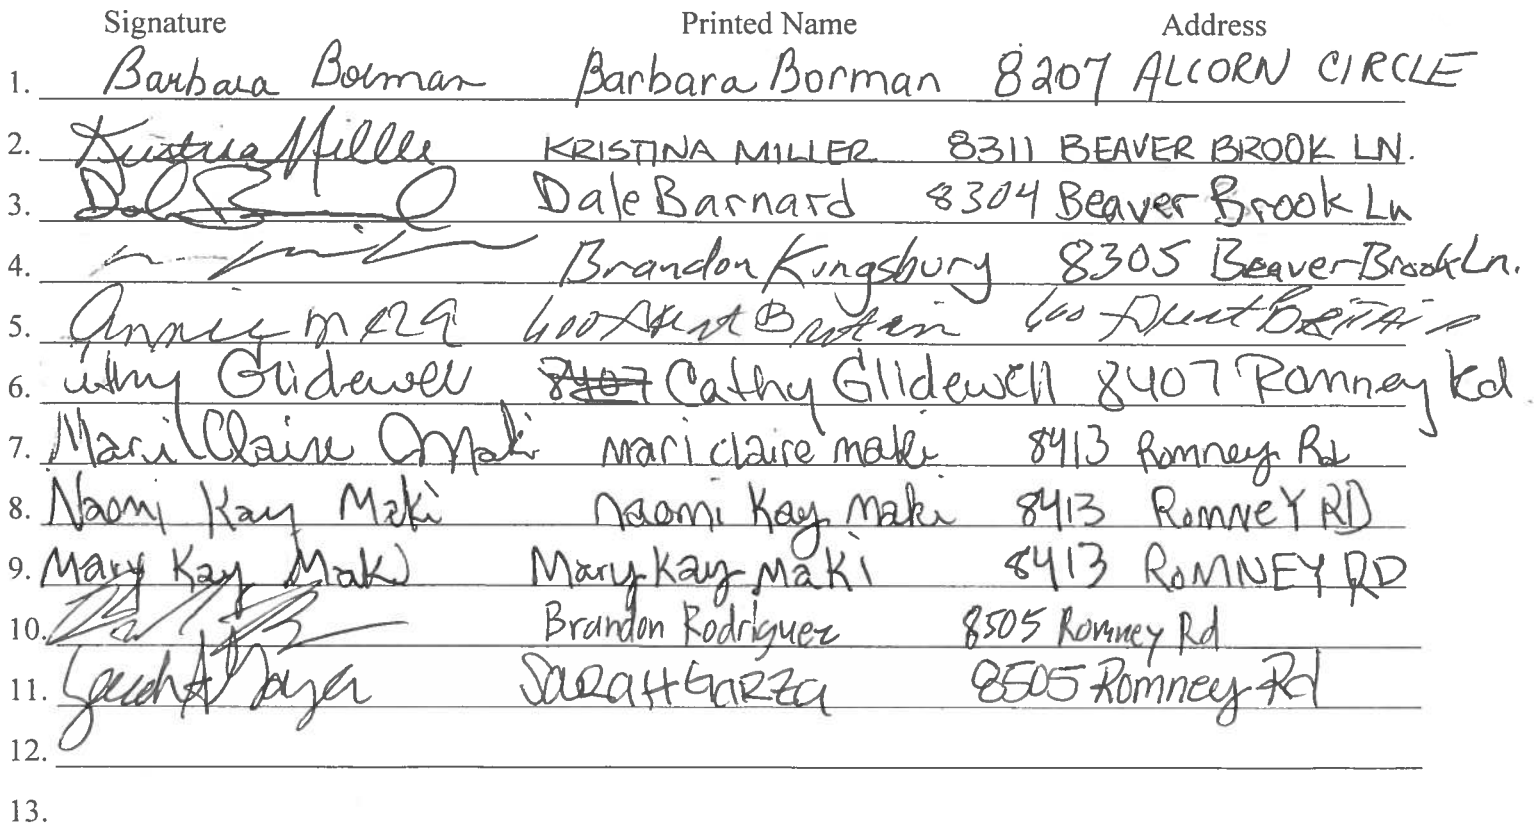 Signature Printed Name Address
1. Barbara Borman Barbara Borman 8207 ALCORN CIRCLE
2. Kristina Miller KRISTINA MILLER 8311 BEAVER BROOK LN.
3. Dale Barnard 8304 Beaver Brook Ln
4. Brandon Kingsbury 8305 Beaver Brook Ln.
5. Annie 600 Britain 600 BRITAin
6. Glidewell 8407 Cathy Glidewell 8407 Romney Rd
7. Mari Claire Maki mari claire maki 8413 Romney Rd
8. Naomi Kay Maki naomi Kay maki 8413 RomNeY RD
9. Mary Kay Maki Mary Kay MaKi 8413 RoMNEY RD
10. Brandon Rodriguez 8505 Romney Rd
11. SARAH GARZA 8505 Romney Rd
12.
13.